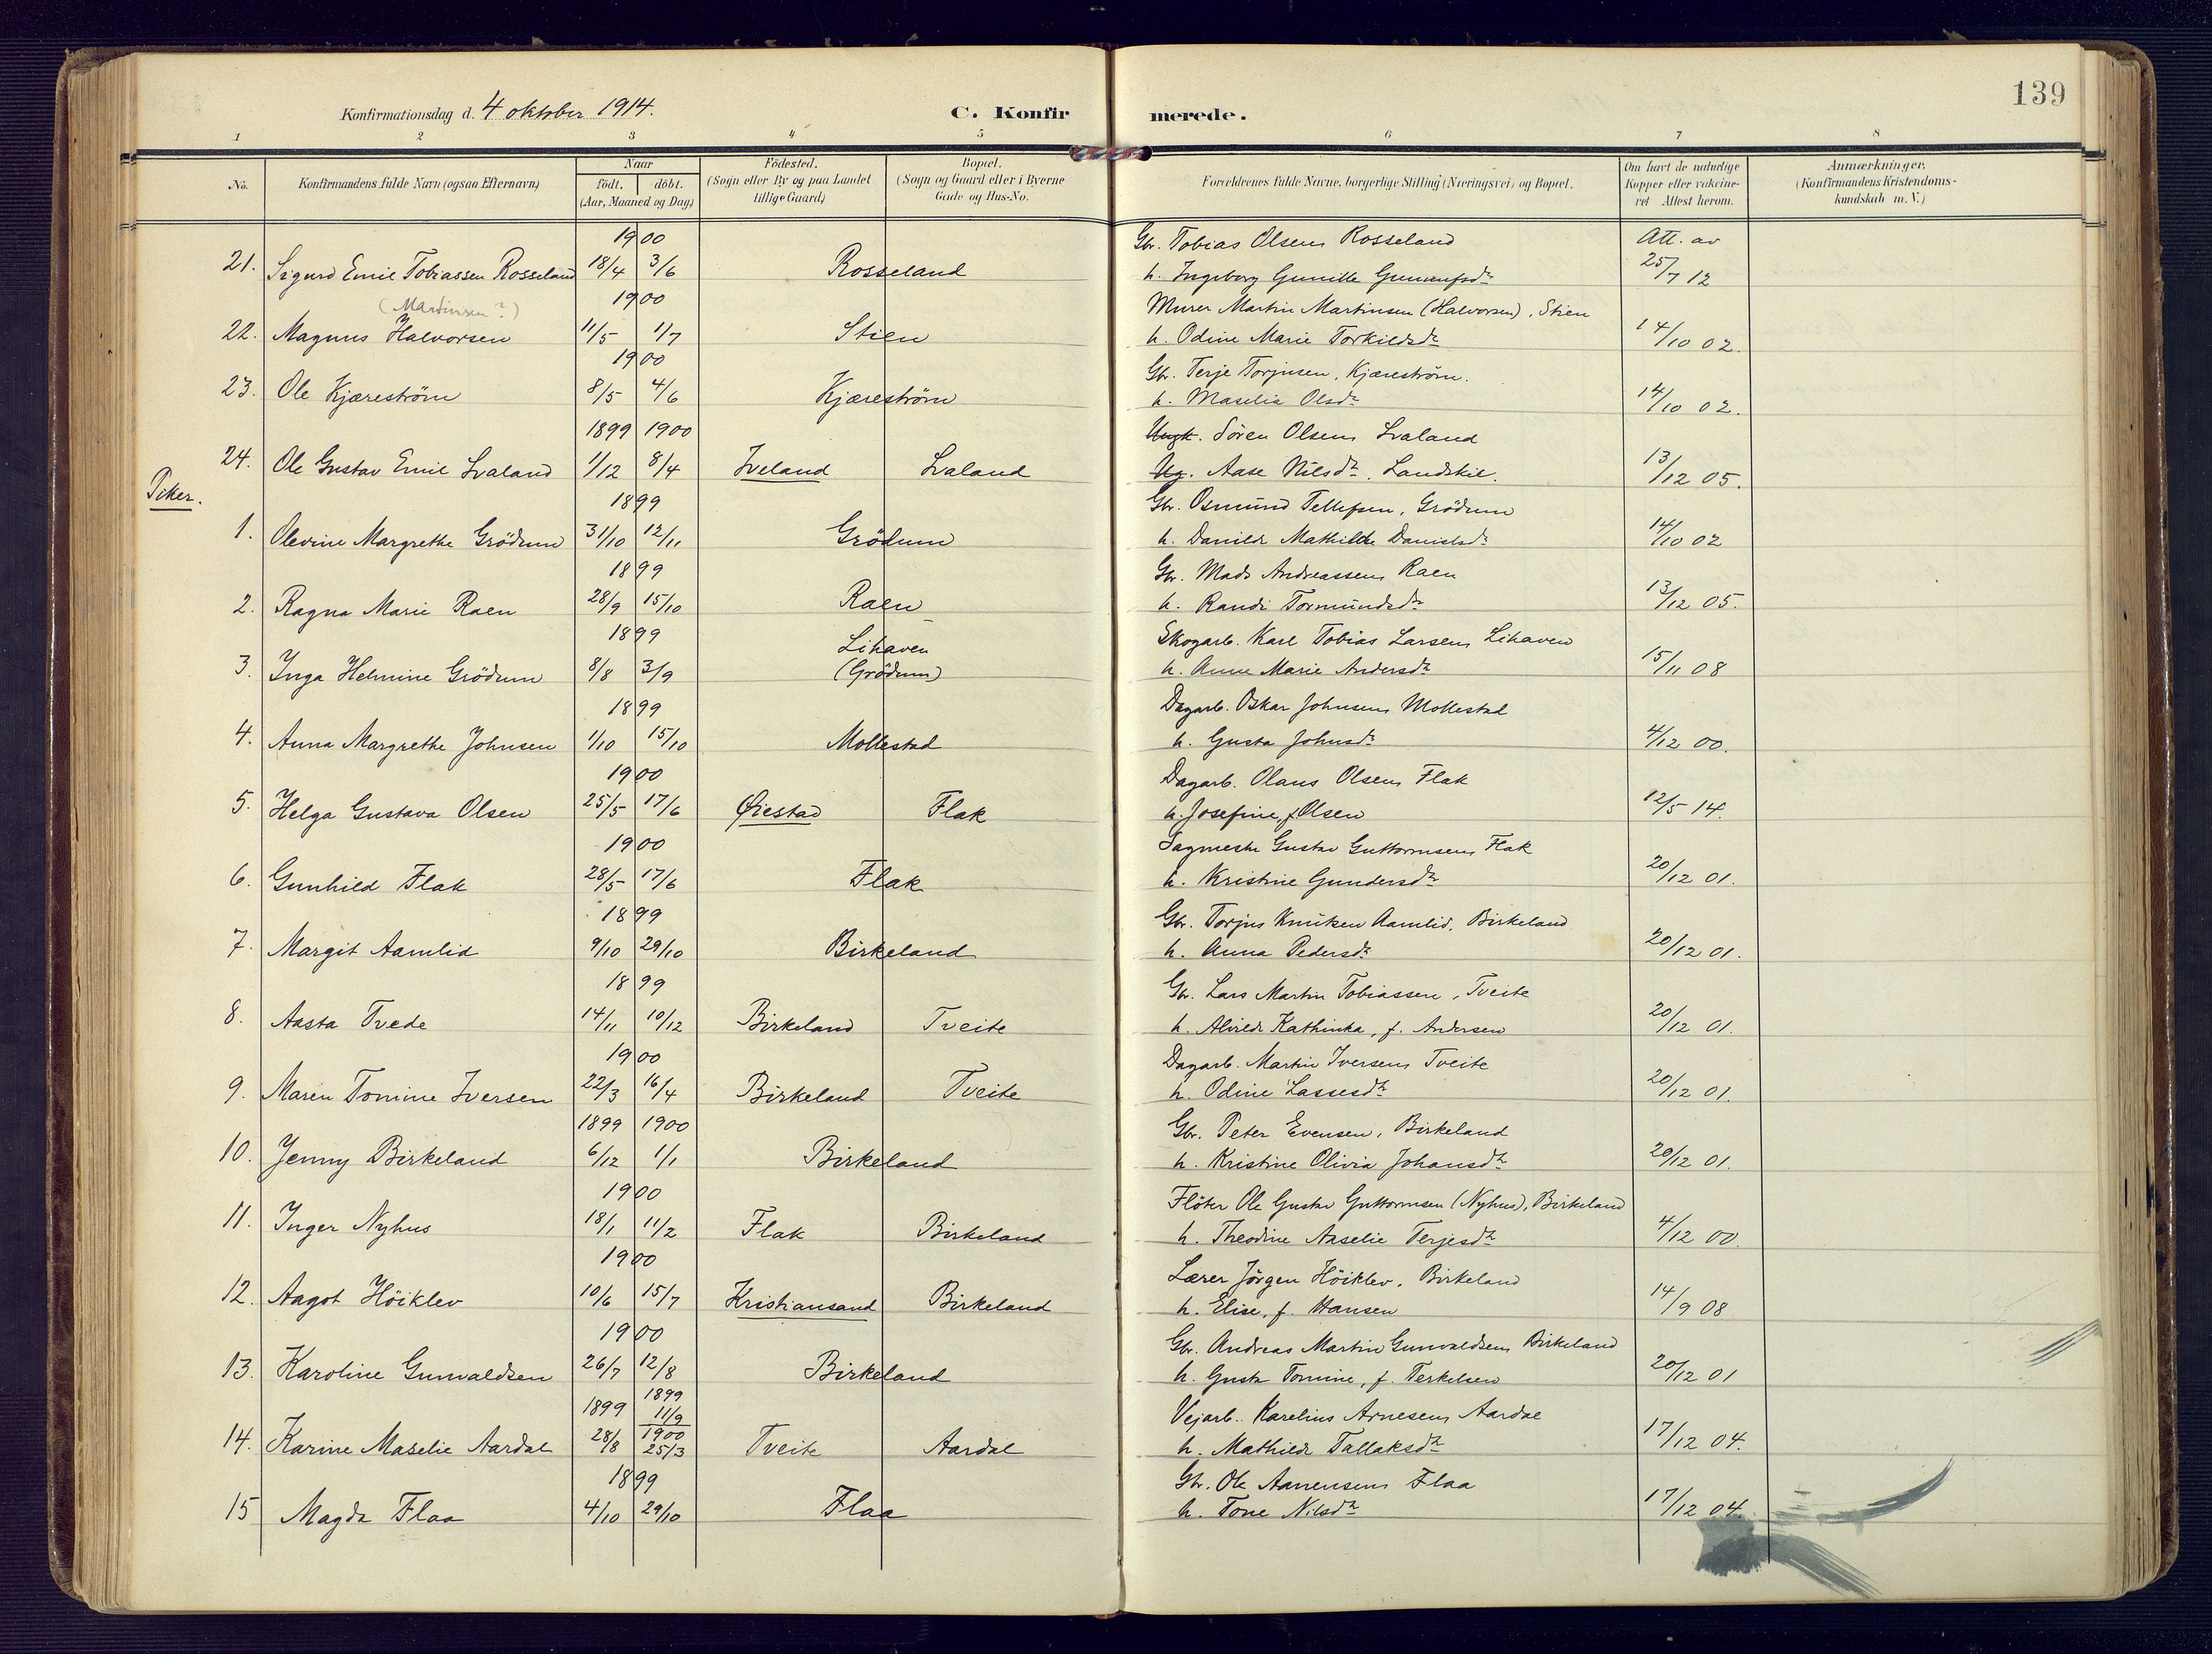 139
Konfirmationsdag d. 4 oktober 1914.
C. Konfirmerede.
1 2 3 4 5 6 7 8
No.
Konfirmandens fulde Navn (ogsaa Efternavn)
Naar
födt. döbt.
(Aar, Maaned og Dag)
Födested.
(Sogn eller By og paa Landet
tillige Gaard)
Bopæl.
(Sogn og Gaard eller i Byerne
Gade og Hus-No.
Forældrenes fulde Navne, borgerlige Stilling (Næringsvei) og Bopæl.
Om havt de naturlige
Kopper eller vakcine-
ret Attest herom.
Anmærkninger.
(Konfirmandens Kristendoms-
kundskab m. V.)
1900 Gbr. Tobias Olsen Rosseland Att. av
21. Sigurd Emil Tobiassen Rosseland 18/4 3/6 Rosseland h. Ingeborg Gunille 25/7 12
(Martinsen?) 1900 Murer Martin Martinsen (Halvorsen), Stien
22. Magnus Halvorsen 11/5 1/7 Stien h. Odine Marie Torkildsdr 14/10 02.
1900 Gbr. Terje Torjusen, Kjæreström.
23. Ole Kjæreström 8/5 4/6 Kjæreström h. Maselia Olsdr 14/10 02.
1899 1900 Ungk. Sören Olsen Lvaland
24. Ole Gustav Emil Lvaland 1/12 8/4 Iveland Lvaland Ug. Aase Nilsdr. Landskil. 13/12 05.
Piker.
1899 Gbr. Osmund Tellefsen, Grödum
1. Olevine Margrethe Grödum 31/10 12/11 Grödum h. Danilde Mathilde Danielsdr 14/10 02
1899 Gbr. Mads Andreassen Raen
2. Ragna Marie Raen 28/9 15/10 Raen h. Randi Tormundsdr 13/12 05.
1899 Lihaven Skogarb. Karl Tobias Larsen Lihaven
3. Inga Helmine Grödum 8/8 3/9 (Grödum) h. Anne Marie Andersdr 15/11 08
1899 Dagarb. Oskar Johnsen Mollestad
4. Anna Margrethe Johnsen 1/10 15/10 Mollestad h. Gusta Johnsdr 4/12 00.
1900 Dagarb. Olaus Olsen Flak
5. Helga Gustava Olsen 25/5 17/6 Øiestad Flak h. Josefine, f. Olsen 12/5 14.
1900 Sagmester Gustav Guttormsen Flak
6. Gunhild Flak 28/5 17/6 Flak h. Kristine Gundersdr 20/12 01.
1899 Gbr. Torjus Knutsen Aamlid, Birkeland
7. Margit Aamlid 9/10 29/10 Birkeland h. Anna Pedersdr 20/12 01.
1899 Gbr. Lars Martin Tobiassen, Tveite
8. Aasta Tvede 14/11 10/12 Birkeland Tveite h. Alvilde Kathinka, f. Andersen 20/12 01.
1900 Dagarb. Martin Iversen Tveite
9. Maren Tomine Iversen 22/3 16/4 Birkeland Tveite h. Odine Lassesdr 20/12 01.
1899 1900 Gbr. Peter Evensen, Birkeland
10. Jenny Birkeland 6/12 1/1 Birkeland h. Kristine Olivia Johansdr 20/12 01.
1900 Flöter Ole Gustav Guttormsen (Nyhus), Birkeland
11. Inger Nyhus 18/1 11/2 Flak Birkeland h. Theodine Aaselie Terjesdr 4/12 00.
1900 Lærer Jörgen Höiklev, Birkeland
12. Aagot Höiklev 10/6 15/7 Kristiansand Birkeland h. Elise, f. Hansen 14/9 08
1900 Gbr. Andreas Martin Gunvaldsen Birkeland
13. Karoline Gunvaldsen 26/7 12/8 Birkeland h. Gusta Tomine, f. Terkelsen 20/12 01
1899 1899 11/9 Vejarb. Karelius Arnesen Aardal
14. Karine Maselie Aardal 28/8 1900 25/3 Tveite Aardal h. Mathilde Tallaksdr 17/12 04.
1899 Gbr. Ole Aanensen Flaa
15 Magda Flaa 4/10 29/10 Flaa h. Tone Nilsdr 17/12 04.